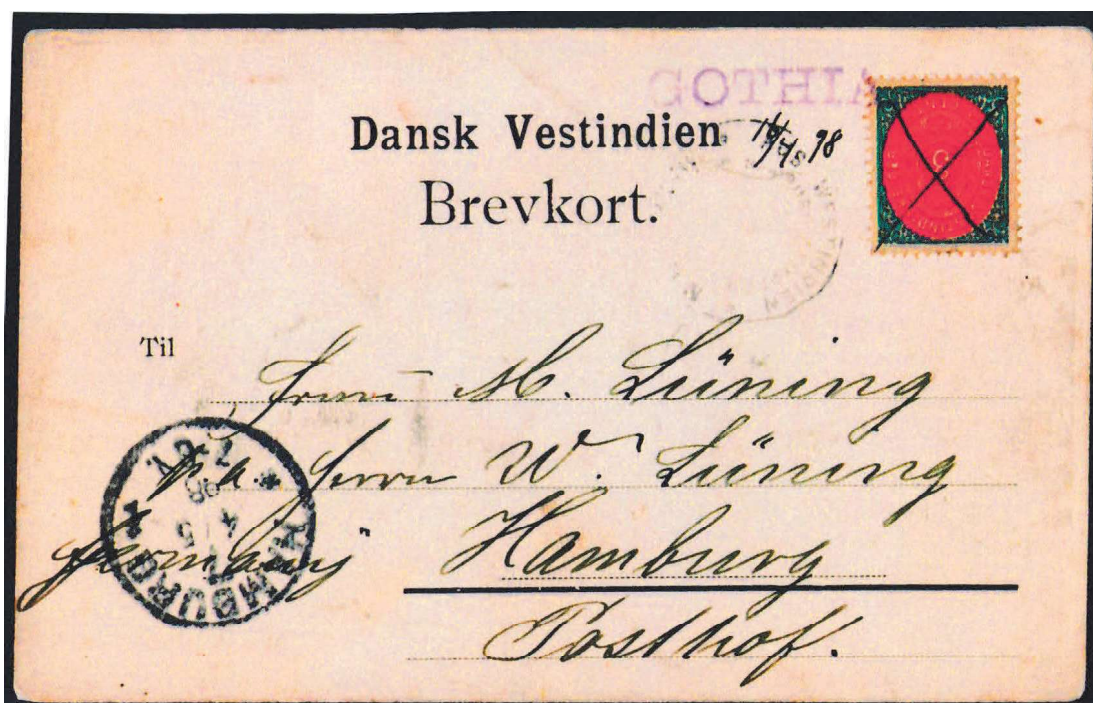 GOTHIA
Dansk Vestindien
16/4 98
Brevkort.
WESTINDIEN
Til
Herrn M. Lüning
p.a. Herrn W. Lüning
Germany Hamburg
Posthof.
HAMBURG